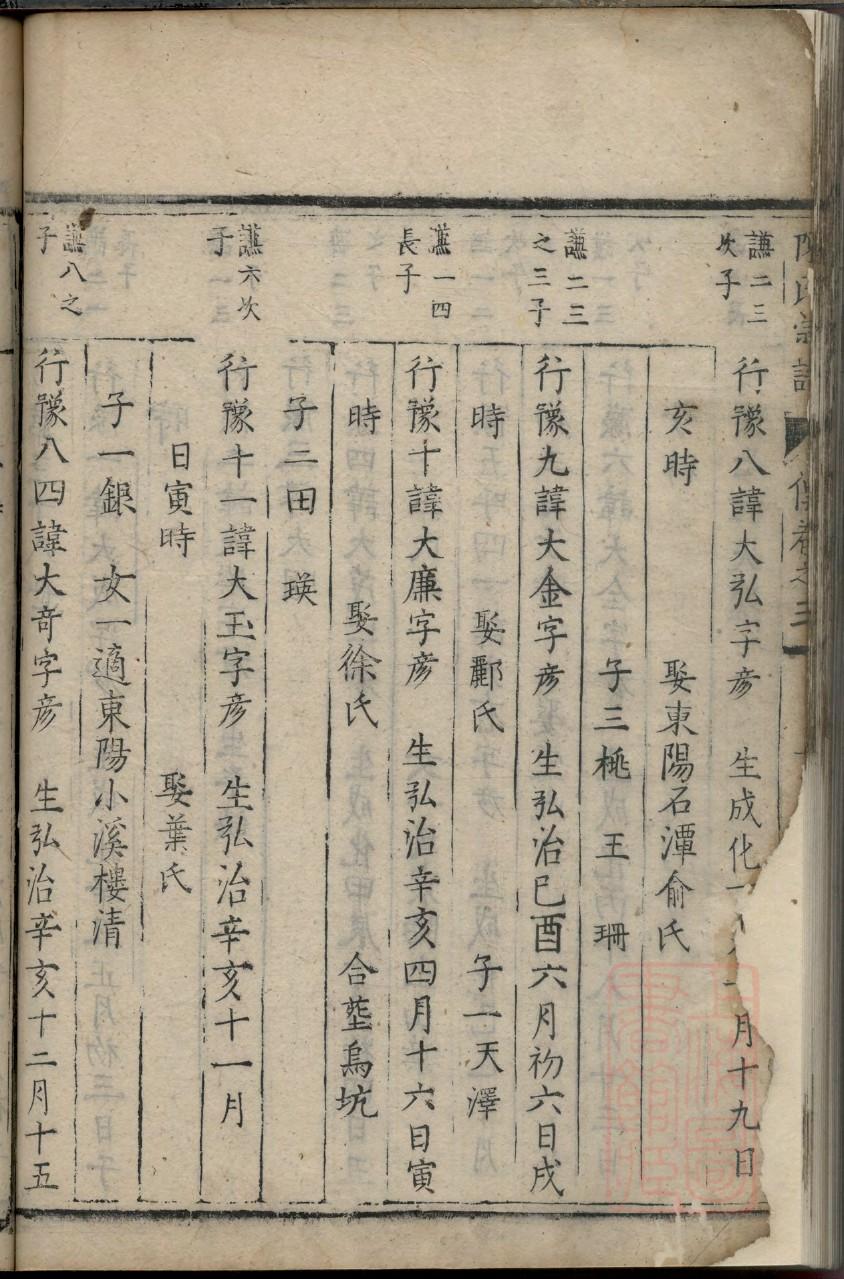 氏宗譜 傳卷之三
謙二三
次子
行豫八諱大弘字彥 生成化 月十九日
亥時 娶東陽石潭俞氏
子三桃 王 珊
謙二三
之三子
行豫九諱大金字彥 生弘治己酉六月初六日戌
時 娶酈氏 子一天澤
謙一四
長子
行豫十諱大廉字彥 生弘治辛亥四月十六日寅
時 娶徐氏 合塟烏坑
子二田 瑛
謙六次
子
行豫十一諱大玉字彥 生弘治辛亥十一月
日寅時 娶葉氏
子一銀 女一適東陽小溪樓清
謙八之
子
行豫八四諱大奇字彥 生弘治辛亥十二月十五